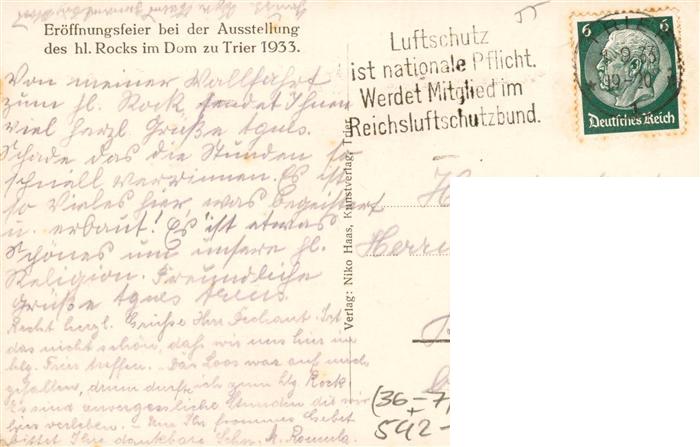 Eröffnungsfeier bei der Ausstellung
des hl. Rocks im Dom zu Trier 1933.
Von meiner Wallfahrt
zum hl. Rock sendet Ihnen
viel herzl. Grüße Agnes.
Schade das die Stunden so
schnell verrinnen. Es ist
so vieles hier, was begeistert
u. erbaut! Es ist etwas
Schönes um unsere hl.
Religion. Freundliche
Grüße Agnes
Recht herzl. Grüße Herr Dechant. Ist
das nicht schön, daß wir uns hier
Feier treffen. Das Loos war auf mich
gefallen, drum durfte ich zum hlg Rock
Es sind unvergessliche Stunden die wir
hier verleben. Um Ihr frommes Gebet
bittet Ihre dankbare Schw. M. Romula.
Verlag: Niko Haas, Kunstverlag, Trier
Luftschutz
ist nationale Pflicht.
Werdet Mitglied im
Reichsluftschutzbund.
6 6
Deutsches Reich
(36-7)
542-